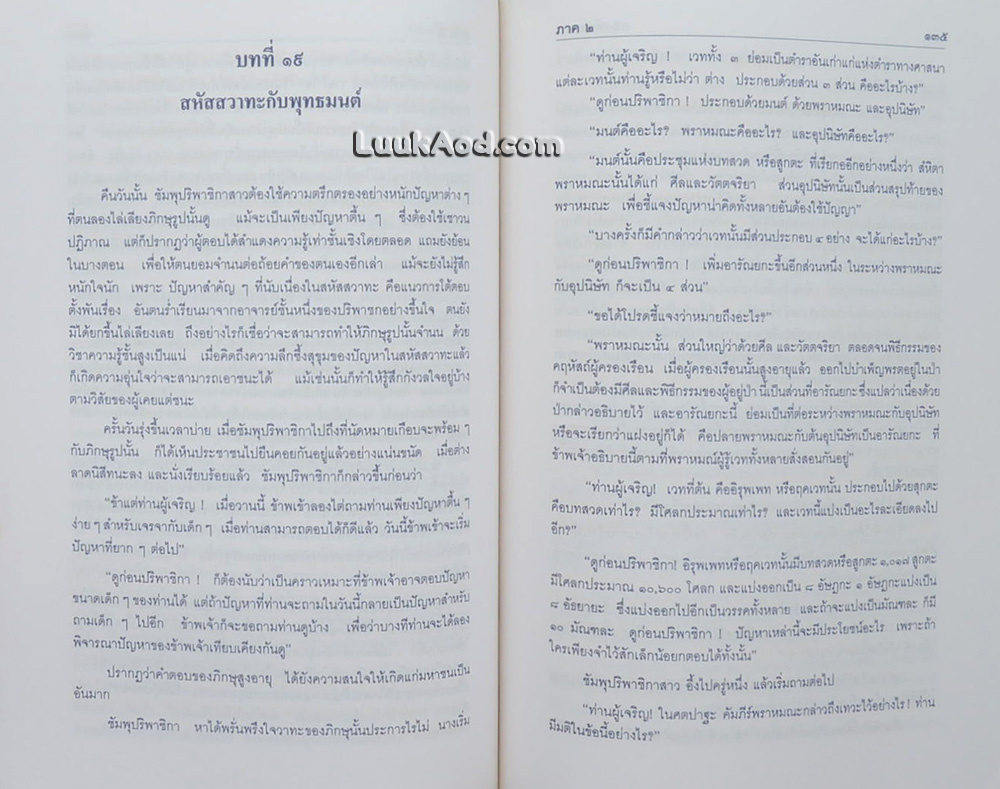 บทที่ ๑๙
สหัสสวาทะกับพุทธมนต์
LuukAod.com
คืนวันนั้น ชัมพุปริพาชิกาสาวต้องใช้ความตรึกตรองอย่างหนักปัญหาต่าง ๆ
ที่ตนลองไล่เลียงภิกษุรูปนั้นดู แม้จะเป็นเพียงปัญหาตื้น ๆ ซึ่งต้องใช้เชาวน
ปฏิภาณ แต่ก็ปรากฏว่าผู้ตอบได้สำแดงความรู้เท่าชั้นเชิงโดยตลอด แถมยังย้อน
ในบางตอน เพื่อให้ตนยอมจำนนต่อถ้อยคำของตนเองอีกเล่า แม้จะยังไม่รู้สึก
หนักใจนัก เพราะ ปัญหาสำคัญ ๆ ที่นับเนื่องในสหัสสวาทะ คือแนวการโต้ตอบ
ตั้งพันเรื่อง อันตนร่ำเรียนมาจากอาจารย์ชั้นหนึ่งของปริพาชกอย่างขึ้นใจ ตนยัง
มิได้ยกขึ้นไล่เลียงเลย ถึงอย่างไรก็เชื่อว่าจะสามารถทำให้ภิกษุรูปนั้นจำนน ด้วย
วิชาความรู้ชั้นสูงเป็นแน่ เมื่อคิดถึงความลึกซึ้งสุขุมของปัญหาในสหัสสวาทะแล้ว
ก็เกิดความอุ่นใจว่าจะสามารถเอาชนะได้ แม้เช่นนั้นก็ทำให้รู้สึกกังวลใจอยู่บ้าง
ตามวิสัยของผู้เคยแต่ชนะ
ครั้นวันรุ่งขึ้นเวลาบ่าย เมื่อชัมพุปริพาชิกาไปถึงที่นัดหมายเกือบจะพร้อม ๆ
กับภิกษุรูปนั้น ก็ได้เห็นประชาชนไปยืนคอยกันอยู่แล้วอย่างแน่นขนัด เมื่อต่าง
ลาดนิสีทนะลง และนั่งเรียบร้อยแล้ว ชัมพุปริพาชิกาก็กล่าวขึ้นก่อนว่า
“ข้าแต่ท่านผู้เจริญ ! เมื่อวานนี้ ข้าพเจ้าลองไต่ถามท่านเพียงปัญหาตื้น ๆ
ง่าย ๆ สำหรับเจรจากับเด็ก ๆ เมื่อท่านสามารถตอบได้ก็ดีแล้ว วันนี้ข้าพเจ้าจะเริ่ม
ปัญหาที่ยาก ๆ ต่อไป”
“ดูก่อนปริพาชิกา ! ก็ต้องนับว่าเป็นคราวเหมาะที่ข้าพเจ้าอาจตอบปัญหา
ขนาดเด็ก ๆ ของท่านได้ แต่ถ้าปัญหาที่ท่านจะถามในวันนี้กลายเป็นปัญหาสำหรับ
ถามเด็ก ๆ ไปอีก ข้าพเจ้าก็จะขอถามท่านดูบ้าง เพื่อว่าบางทีท่านจะได้ลอง
พิจารณาปัญหาของข้าพเจ้าเทียบเคียงกันดู”
ปรากฏว่าคำตอบของภิกษุสูงอายุ ได้ยังความสนใจให้เกิดแก่มหาชนเป็น
อันมาก
ชัมพุปริพาชิกา หาได้พรั่นพรึงใจวาทะของภิกษุนั้นประการไรไม่ นางเริ่ม
ภาค ๒
๑๓๕
“ท่านผู้เจริญ ! เวททั้ง ๓ ย่อมเป็นตำราอันเก่าแก่แห่งตำราทางศาสนา
แต่ละเวทนั้นท่านรู้หรือไม่ว่า ต่าง ประกอบด้วยส่วน ๓ ส่วน คืออะไรบ้าง?”
“ดูก่อนปริพาชิกา ! ประกอบด้วยมนต์ ด้วยพราหมณะ และอุปนิษัท”
“มนต์คืออะไร? พราหมณะคืออะไร? และอุปนิษัทคืออะไร?”
“มนต์นั้นคือประชุมแห่งบทสวด หรือสูกตะ ที่เรียกอีกอย่างหนึ่งว่า สํหิตา
พราหมณะนั้นได้แก่ ศีลและวัตตจริยา ส่วนอุปนิษัทนั้นเป็นส่วนสรุปท้ายของ
พราหมณะ เพื่อชี้แจงปัญหาน่าคิดทั้งหลายอันต้องใช้ปัญญา”
“บางครั้งก็มีคำกล่าวว่าเวทนั้นมีส่วนประกอบ ๔ อย่าง จะได้แก่อะไรบ้าง?”
“ดูก่อนปริพาชิกา ! เพิ่มอารัณยกะขึ้นอีกส่วนหนึ่ง ในระหว่างพราหมณะ
กับอุปนิษัท ก็จะเป็น ๔ ส่วน”
“ขอได้โปรดชี้แจงว่าหมายถึงอะไร?”
“พราหมณะนั้น ส่วนใหญ่ว่าด้วยศีล และวัตตจริยา ตลอดจนพิธีกรรมของ
คฤหัสถ์ผู้ครองเรือน เมื่อผู้ครองเรือนนั้นสูงอายุแล้ว ออกไปบำเพ็ญพรตอยู่ในป่า
ก็จำเป็นต้องมีศีลและพิธีกรรมของผู้อยู่ป่า นี้เป็นส่วนที่อารัณยกะซึ่งแปลว่าเนื่องด้วย
ป่ากล่าวอธิบายไว้ และอารัณยกะนี้ ย่อมเป็นที่ต่อระหว่างพราหมณะกับอุปนิษัท
หรือจะเรียกว่าแฝงอยู่ก็ได้ คือปลายพราหมณะกับต้นอุปนิษัทเป็นอารัณยกะ ที่
ข้าพเจ้าอธิบายนี้ตามที่พราหมณ์ผู้รู้เวททั้งหลายสั่งสอนกันอยู่”
“ท่านผู้เจริญ! เวทที่ต้น คืออิรุพเพท หรือฤคเวทนั้น ประกอบไปด้วยสูกตะ
คือบทสวดเท่าไร? มีโศลกประมาณเท่าไร? และเวทนี้แบ่งเป็นอะไรละเอียดลงไป
อีก?”
“ดูก่อนปริพาชิกา! อิรุพเพทหรือฤคเวทนั้นมีบทสวดหรือสูกตะ ๑,๐๑๗ สูกตะ
มีโศลกประมาณ ๑๐,๖๐๐ โศลก และแบ่งออกเป็น ๘ อัษฎกะ ๑ อัษฎกะแบ่งเป็น
๘ อัธยายะ ซึ่งแบ่งออกไปอีกเป็นวรรคทั้งหลาย และถ้าจะแบ่งเป็นมัณฑละ ก็มี
๑๐ มัณฑละ ดูก่อนปริพาชิกา ! ปัญหาเหล่านี้จะมีประโยชน์อะไร เพราะถ้า
ใครเพียงจำไว้สักเล็กน้อยกตอบได้ทั้งนั้น”
ชัมพุปริพาชิกาสาว อึ้งไปครู่หนึ่ง แล้วเริ่มถามต่อไป
“ท่านผู้เจริญ! ในศตปาฐะ คัมภีร์พราหมณะกล่าวถึงเทวะไว้อย่างไร! ท่าน
มีมติในข้อนี้อย่างไร?”